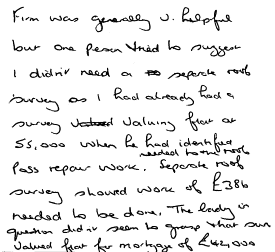 Firm was generally v. helpful
but one person tried to suggest
I didn't need a separate roof
survey as I had already had a
survey valuing flat at
55,000 when he had identified
needed to the roof
Poss repair work. Separate roof
survey showed work of £386
needed to be done. The lady in
question didn't seem to grasp what sum
valued flat for mortgage of £42,000